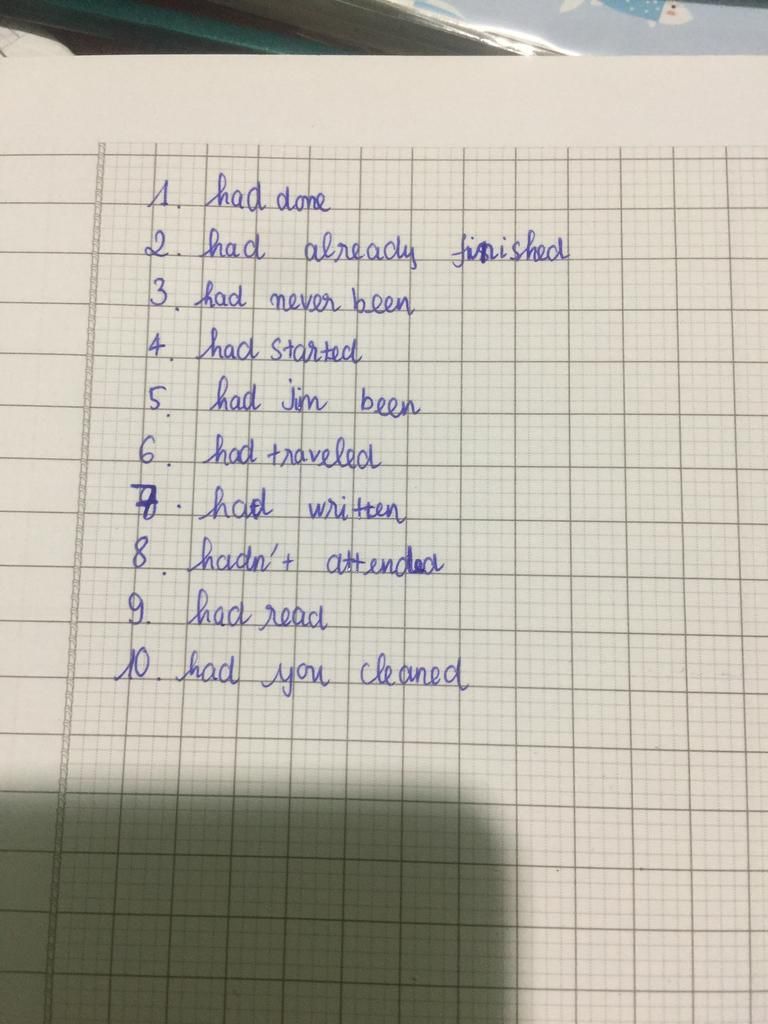 1. had done
2. had already finished
3. had never been
4. had started
5. had jim been
6. had traveled
7. had written
8. hadn't attended
9. had read
10. had you cleaned